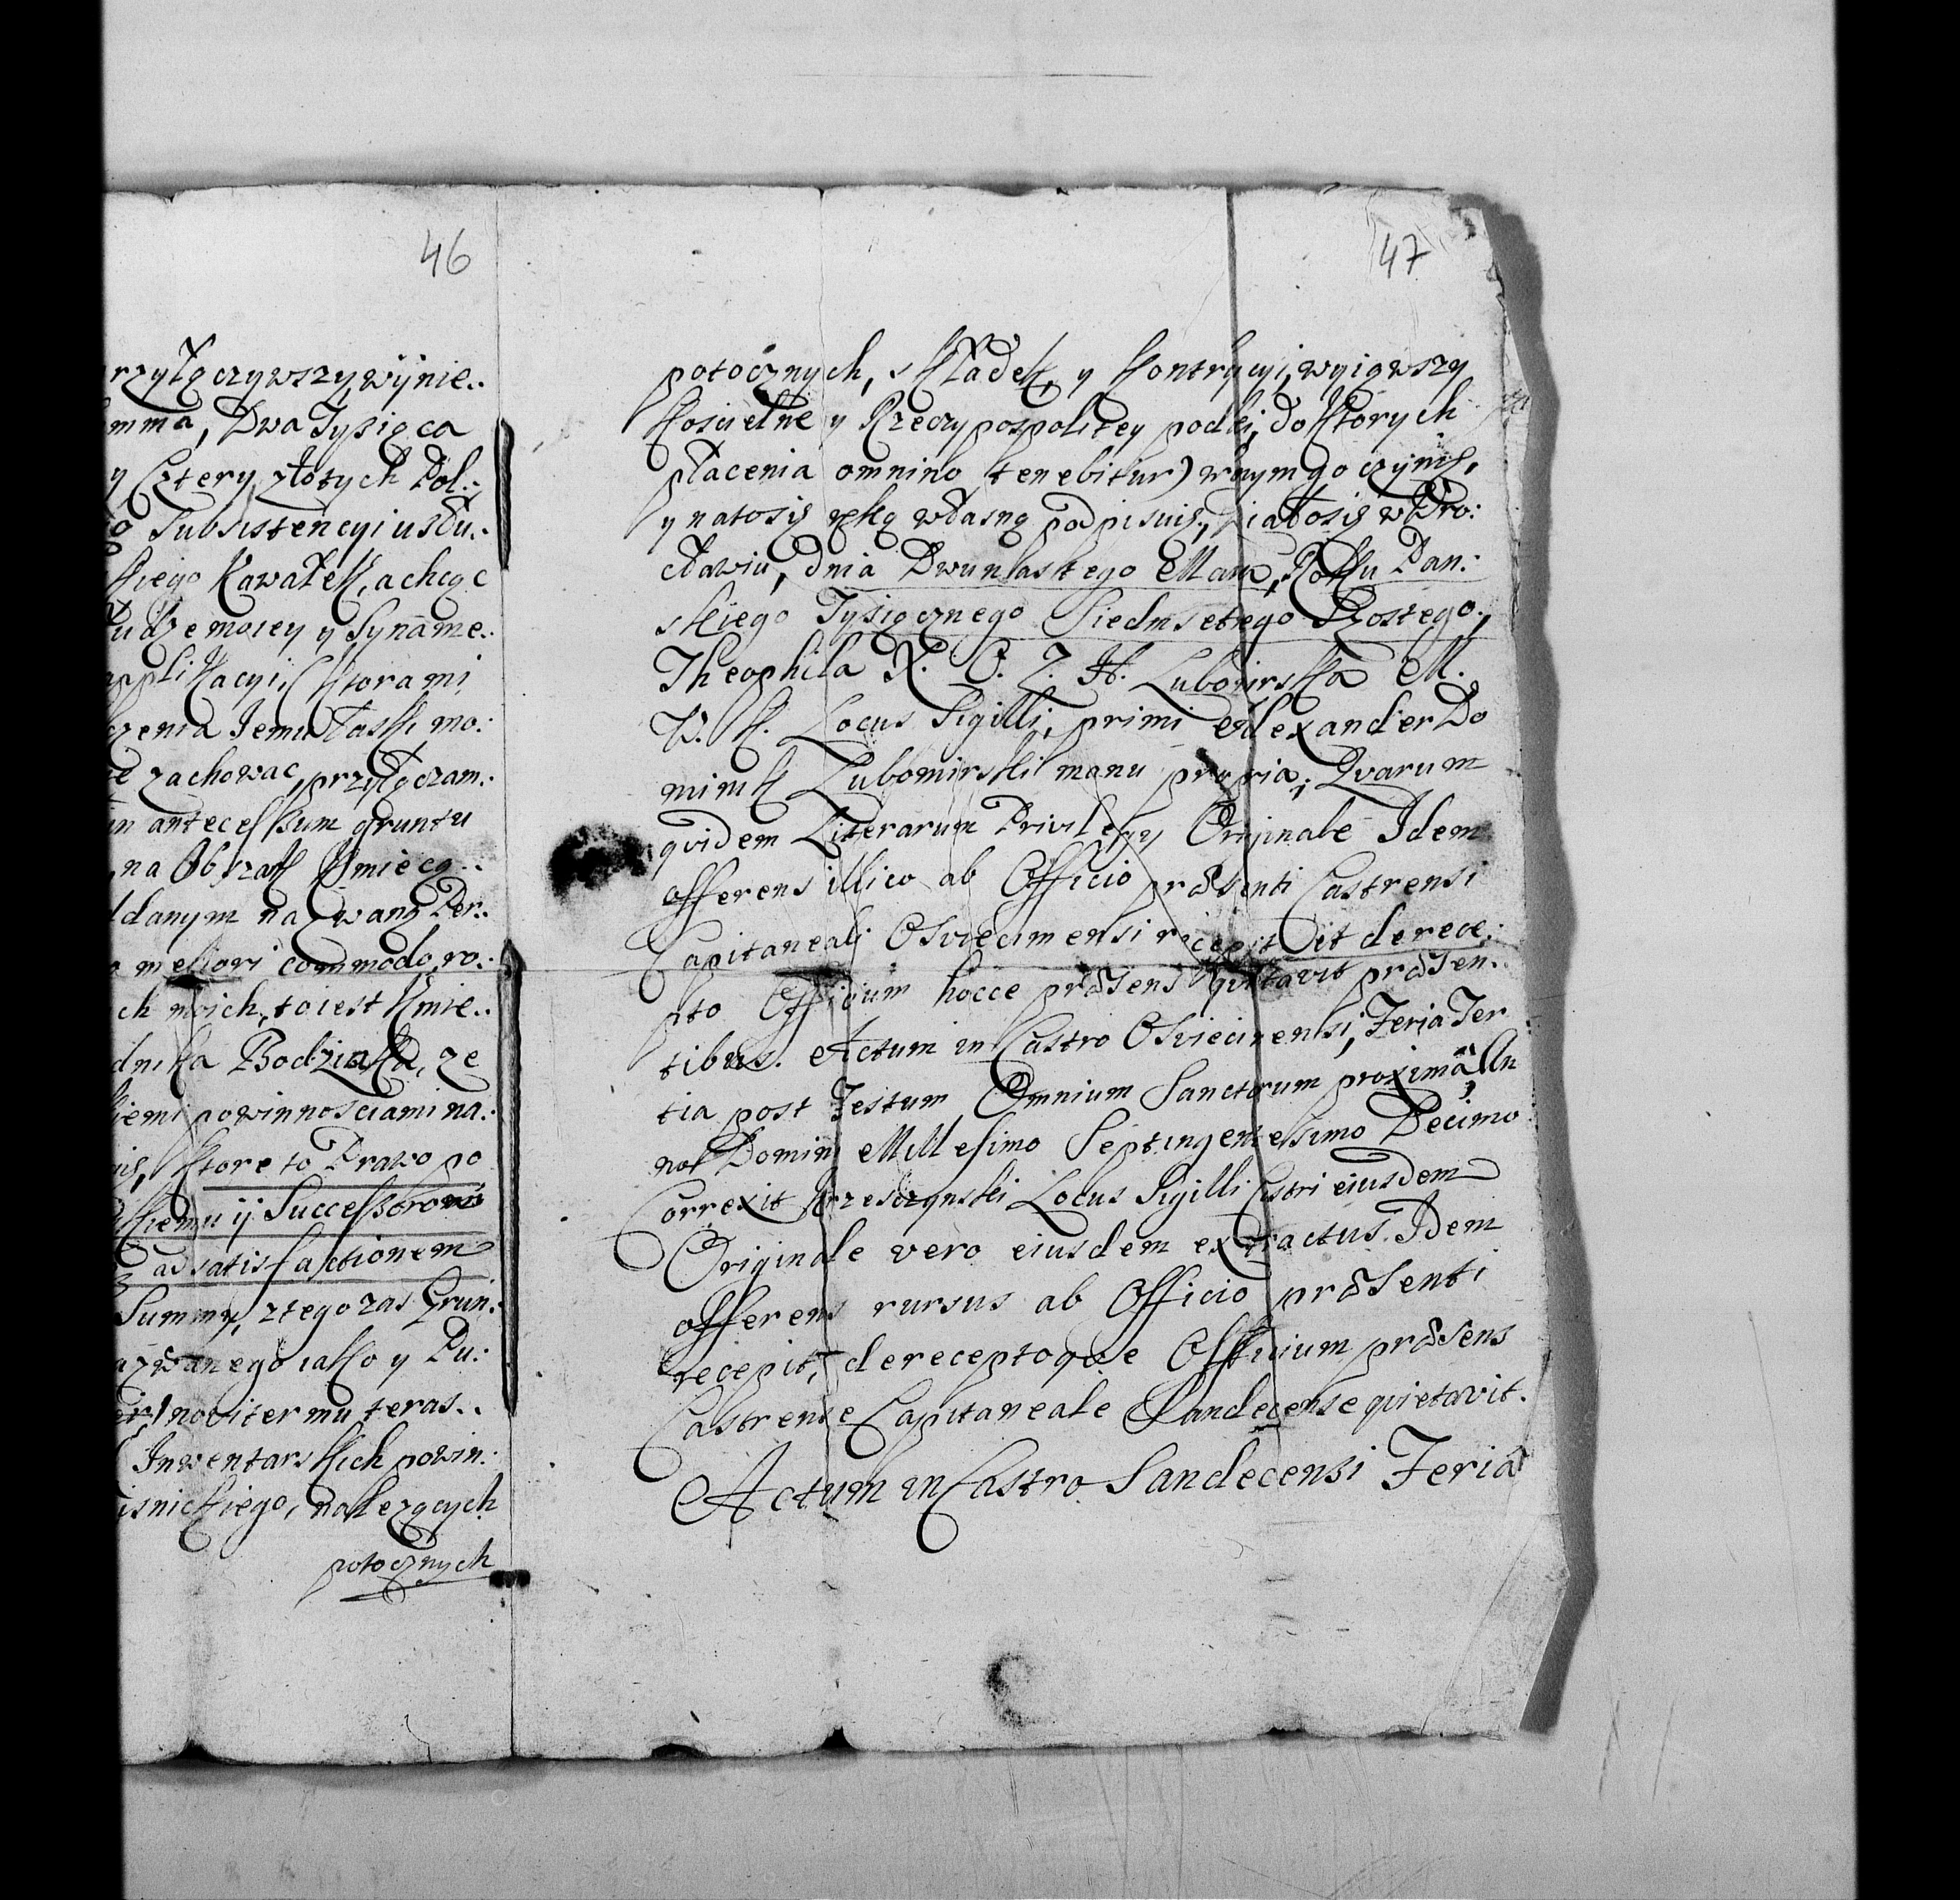 46
rzyłączywszy, wynie:
mma, Dwa Tysiąca
y Cztery złotych Pol:
Subsistencyi usłu:
kiego Kawałek, a chcąc
udze moiey y Syname:
applikacyi, ktorami
czenia Jemu łaski mo:
zachowac, przyłączam:
in antecessum gruntu
na Obszak Kmiecą:
ddanym nazwaną Per:
meliori commodo, ro:
ch moich, to iest Kmie:
dnika Bodziaka, ze
kiemi powinnosciami na:
ktore to Prawo po
kiemu ij Successorowi
ad satisfactionem
Summy, z tego zas Grun:
azwanego iako y Pu:
noviter mu teras:
Inwentarskich powin:
isnickiego, nalezących
potocznych
47
potocznych, składek, y kontrycyi, wyiąwszy
Koscielne y Rzeczypospolitey podki, do ktorych
płacenia omnino tenebitur) wolnym go czynię,
y na to się ręką własną podpisuię, Działo się w Wro:
cławiu, dnia Dwunastego Maia, Roku Pan:
skiego Tysiącznego Siedmsetnego Szostego,
Theophila X. O. Z. H. Lubomirska M.
W. K. Locus Sigilli, primi Alexander Do
minik Lubomirski manu propria; Qvarum
qvidem Literarum Privilegij Originale Idem
offerens illico ab Officio præsenti Castrensi
Capitaneali Osviecimensi recepit et de rece:
pto Officium hocce præsens qvitavit præsen:
tibus. Actum in Castro Osviecimensi, Feria Ter
tia post Festum Omnium Sanctorum proxima An
no Domini Millesimo Septingentesimo Decimo
Correxit Krzesczynski Locus Sigilli Castri eiusdem
Originale vero eiusdem extractus Idem
offerens rursus ab Officio præsenti
recepit, de receptoqve Officium præsens
Castrense Capitaneale Sandecense qvietavit.
Actum in Castro Sandecensi Feria